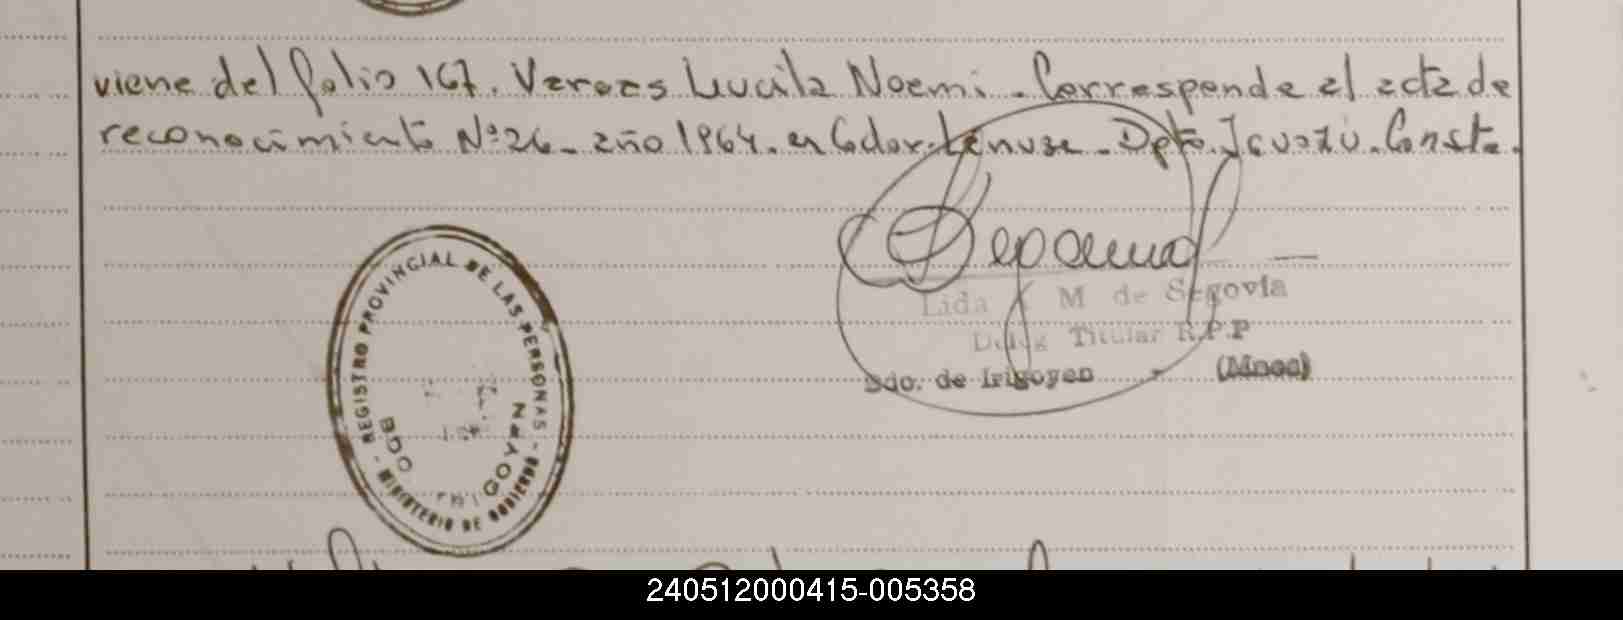 viene del folio 167. Vargas Lucila Noemi. Corresponde al acta de
reconocimiento Nº 26. año 1964. en Cdor. Lanusse. Dpto. Iguazú. Conste.
Lida M de Segovia
Deleg Titular R.P.P
Bdo. de Irigoyen - (Mnes)
REGISTRO PROVINCIAL DE LAS PERSONAS - MINISTERIO DE GOBIERNO -
BDO IRIGOYEN
240512000415-005358